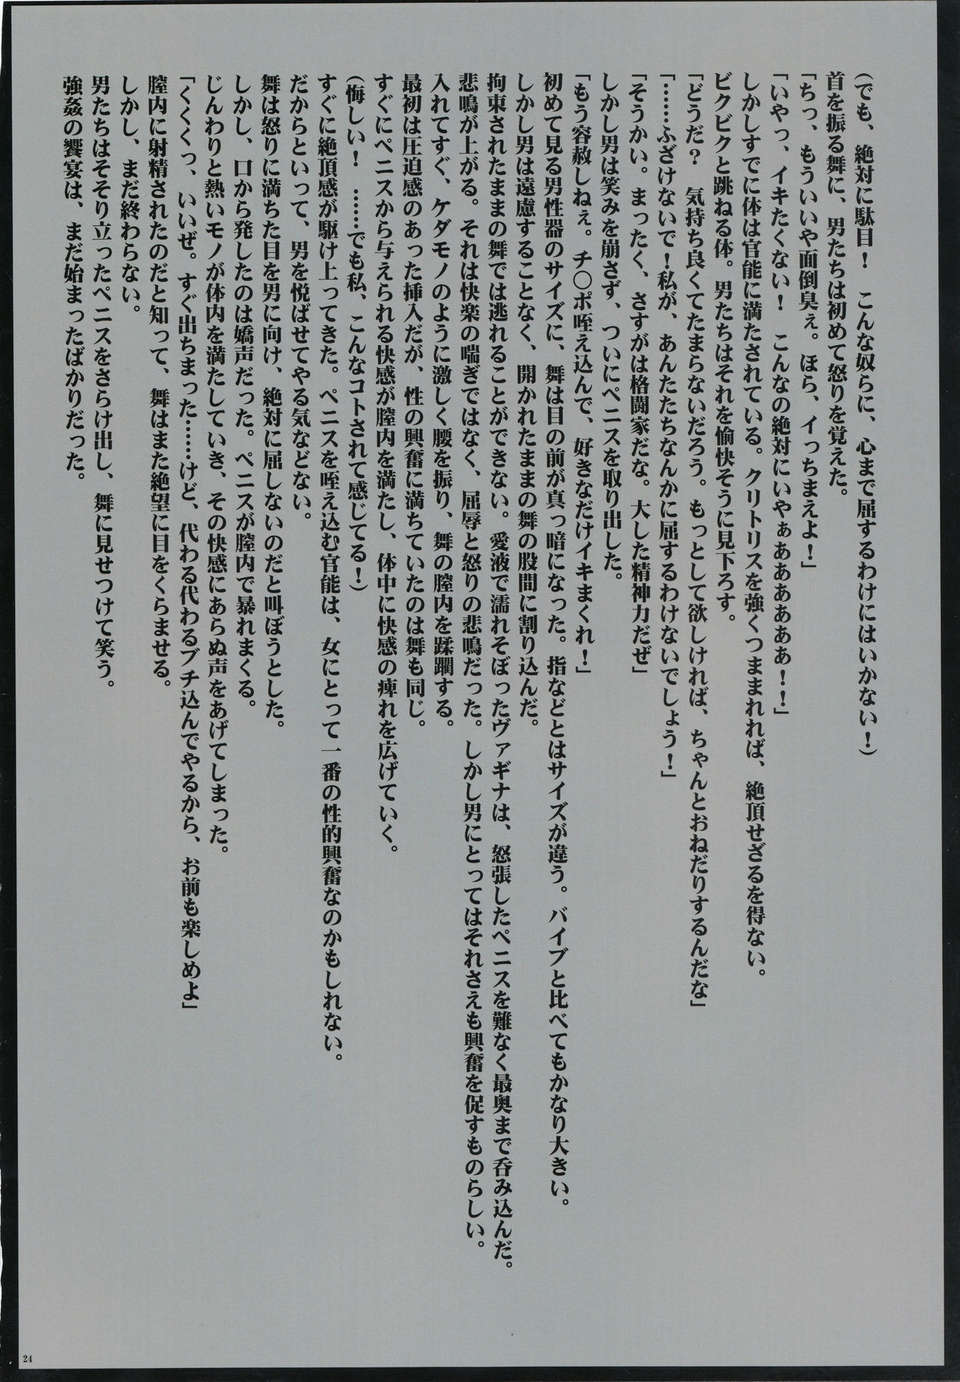 （でも、絶対に駄目！　こんな奴らに、心まで屈するわけにはいかない！）
首を振る舞に、男たちは初めて怒りを覚えた。
「ちっ、もういいや面倒臭ぇ。ほら、イっちまえよ！」
「いやっ、イキたくない！　こんなの絶対にいやぁああああぁ！！」
しかしすでに体は官能に満たされている。クリトリスを強くつままれれば、絶頂せざるを得ない。
ビクビクと跳ねる体。男たちはそれを愉快そうに見下ろす。
「どうだ？　気持ち良くてたまらないだろう。もっとして欲しければ、ちゃんとおねだりするんだな」
「……ふざけないで！私が、あんたたちなんかに屈するわけないでしょう！」
「そうかい。まったく、さすがは格闘家だな。大した精神力だぜ」
しかし男は笑みを崩さず、ついにペニスを取り出した。
「もう容赦しねぇ。チ〇ポ咥え込んで、好きなだけイキまくれ！」
初めて見る男性器のサイズに、舞は目の前が真っ暗になった。指などとはサイズが違う。バイブと比べてもかなり大きい。
しかし男は遠慮することなく、開かれたままの舞の股間に割り込んだ。
拘束されたままの舞では逃れることができない。愛液で濡れそぼったヴァギナは、怒張したペニスを難なく最奥まで呑み込んだ。
悲鳴が上がる。それは快楽の喘ぎではなく、屈辱と怒りの悲鳴だった。しかし男にとってはそれさえも興奮を促すものらしい。
入れてすぐ、ケダモノのように激しく腰を振り、舞の膣内を蹂躙する。
最初は圧迫感のあった挿入だが、性の興奮に満ちていたのは舞も同じ。
すぐにペニスから与えられる快感が膣内を満たし、体中に快感の痺れを広げていく。
（悔しい！　……でも私、こんなコトされて感じてる！）
すぐに絶頂感が駆け上ってきた。ペニスを咥え込む官能は、女にとって一番の性的興奮なのかもしれない。
だからといって、男を悦ばせてやる気などない。
舞は怒りに満ちた目を男に向け、絶対に屈しないのだと叫ぼうとした。
しかし、口から発したのは嬌声だった。ペニスが膣内で暴れまくる。
じんわりと熱いモノが体内を満たしていき、その快感にあらぬ声をあげてしまった。
「くくくっ、いいぜ。すぐ出ちまった……けど、代わる代わるブチ込んでやるから、お前も楽しめよ」
膣内に射精されたのだと知って、舞はまた絶望に目をくらませる。
しかし、まだ終わらない。
男たちはそそり立ったペニスをさらけ出し、舞に見せつけて笑う。
強姦の饗宴は、まだ始まったばかりだった。
24